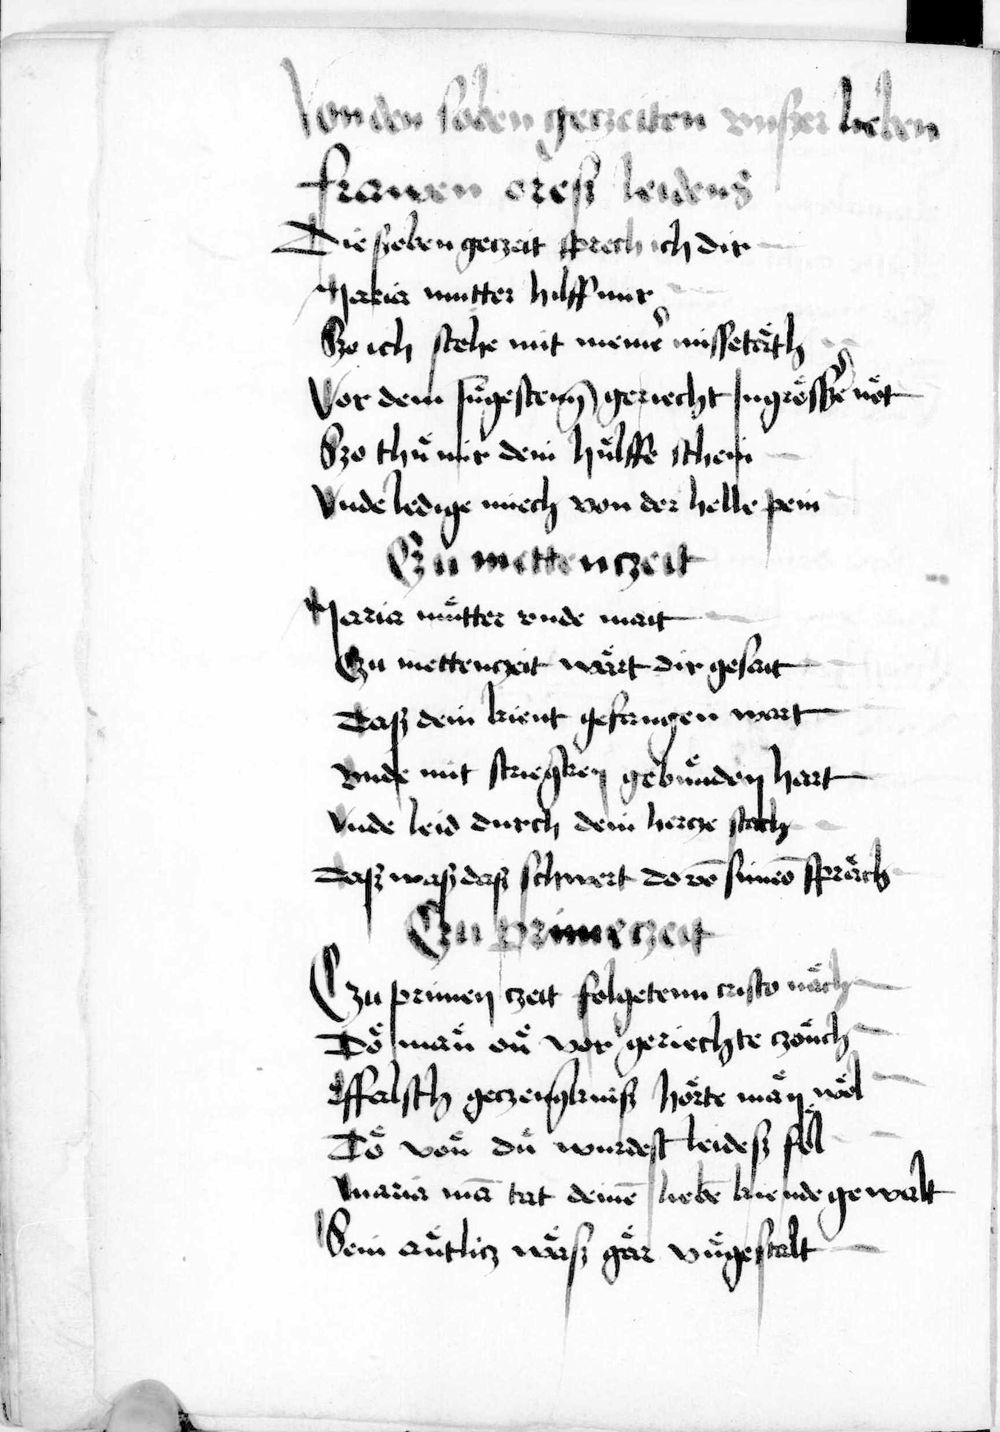 Von den soben getzeiten vnszer lieben
frawen eresz leidens
Die szoben getzeit sprech ich dir
Maria mutter hilff mir
Szo ich stehe mit meiner missetath
Vor dem geriecht In grosszer not
Szo thu mir dein hulffe schein
Vnde ledige miech von der helle pein
Czu mettenczeit
Maria mutter vnde mait
Czu mettenczeit wart dir gesait
Dasz dein kient gefangen wart
Vnde mit striegken gebunden hart
Vnde leid durch dein hercze stach
Dasz wasz dasz schwert do vō simeō sprach
Czu primeczeit
Czu primen czeit folgetenn cristo nach
Do man on vor geriechte czouch
Ffalsch getzeugknisz horte man wol
Do von du wurdest leidesz fol
Maria mā tat deinē liebē kiende gewalt
Sein antlicz wasz gar vngestalt